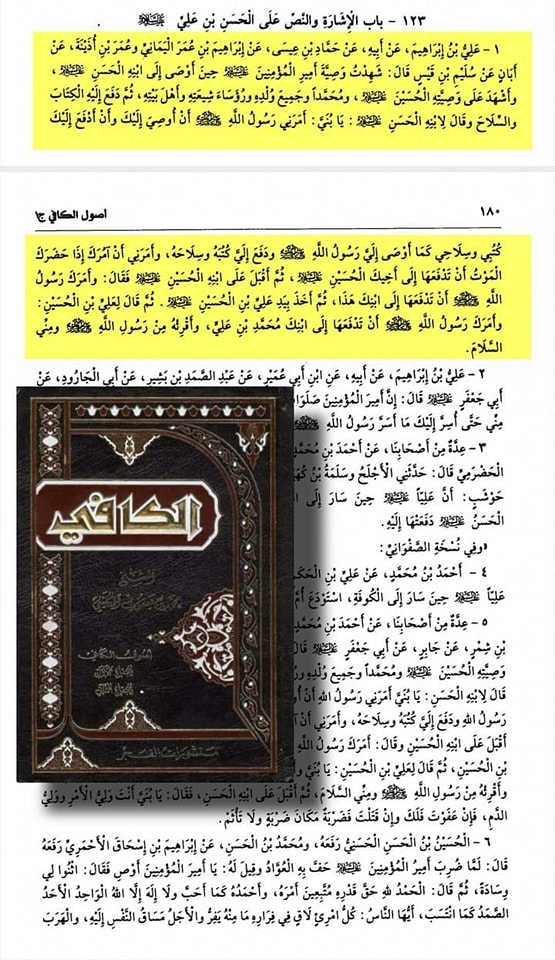 ١٢٣ - باب الْإِشَارَةِ والنَّصْ عَلَى الْحَسَنِ بْنِ عَلِيٍّ عليه السلام
١ - عَلِيُّ بْنُ إِبْرَاهِيمَ، عَنْ أَبِيهِ، عَنْ حَمَّادِ بْنِ عِيسَى، عَنْ إِبْرَاهِيمَ بْنِ عُمَرَ الْيَمَانِيِّ وعُمَرَ بْنِ أُذَيْنَةَ، عَنْ
أَبَانٍ عَنْ سُلَيْمِ بْنِ قَيْسٍ قَالَ: شَهِدْتُ وَصِيَّةَ أَمِيرِ الْمُؤْمِنِينَ عليه السلام حِينَ أَوْصَى إِلَى ابْنِهِ الْحَسَنِ عليه السلام ،
وأَشْهَدَ عَلَى وَصِيَّتِهِ الْحُسَيْنَ عليه السلام ، ومُحَمَّداً وجَمِيعَ وُلْدِهِ ورُؤَسَاءَ شِيعَتِهِ وأَهْلَ بَيْتِهِ، ثُمَّ دَفَعَ إِلَيْهِ الْكِتَابَ
والسِّلَاحَ وقَالَ لِابْنِهِ الْحَسَنِ عليه السلام : يَا بُنَيَّ: أَمَرَنِي رَسُولُ اللَّهِ صلى الله عليه وآله وسلم أَنْ أُوصِيَ إِلَيْكَ وأَنْ أَدْفَعَ إِلَيْكَ
١٨٠
أصول الكافي ج١
كُتُبِي وسِلَاحِي كَمَا أَوْصَى إِلَيَّ رَسُولُ اللَّهِ صلى الله عليه وآله وسلم ودَفَعَ إِلَيَّ كُتُبَهُ وسِلَاحَهُ، وأَمَرَنِي أَنْ آمُرَكَ إِذَا حَضَرَكَ
الْمَوْتُ أَنْ تَدْفَعَهَا إِلَى أَخِيكَ الْحُسَيْنِ عليه السلام ، ثُمَّ أَقْبَلَ عَلَى ابْنِهِ الْحُسَيْنِ عليه السلام فَقَالَ: وأَمَرَكَ رَسُولُ
اللَّهِ صلى الله عليه وآله وسلم أَنْ تَدْفَعَهَا إِلَى ابْنِكَ هَذَا، ثُمَّ أَخَذَ بِيَدِ عَلِيِّ بْنِ الْحُسَيْنِ عليه السلام . ثُمَّ قَالَ لِعَلِيِّ بْنِ الْحُسَيْنِ:
وأَمَرَكَ رَسُولُ اللَّهِ صلى الله عليه وآله وسلم أَنْ تَدْفَعَهَا إِلَى ابْنِكَ مُحَمَّدِ بْنِ عَلِيٍّ، وأَقْرِئْهُ مِنْ رَسُولِ اللَّهِ صلى الله عليه وآله وسلم ومِنِّي
السَّلَامَ.
٢ - عَلِيُّ بْنُ إِبْرَاهِيمَ، عَنْ أَبِيهِ، عَنِ ابْنِ أَبِي عُمَيْرٍ، عَنْ عَبْدِ الصَّمَدِ بْنِ بَشِيرٍ، عَنْ أَبِي الْجَارُودِ، عَنْ
أَبِي جَعْفَرٍ عليه السلام قَالَ: إِنَّ أَمِيرَ الْمُؤْمِنِينَ صَلَوَا
مِنِّي حَتَّى أُسِرَّ إِلَيْكَ مَا أَسَرَّ رَسُولُ
٣ - عِدَّةٌ مِنْ أَصْحَابِنَا، عَنْ أَحْمَدَ بْنِ مُحَمَّدٍ
الْحَضْرَمِيِّ قَالَ: حَدَّثَنِي الْأَجْلَحُ وسَلَمَةُ بْنُ كُهَ
حَوْشَبٍ: أَنَّ عَلِيّاً عليه السلام حِينَ سَارَ إِلَى
الْحَسَنُ عليه السلام دَفَعَتْهَا إِلَيْهِ.
وفِي نُسْخَةِ الصَّفْوَانِيِّ:
٤ - أَحْمَدُ بْنُ مُحَمَّدٍ، عَنْ عَلِيِّ بْنِ الْحَكَمِ
عَلِيّاً عليه السلام حِينَ سَارَ إِلَى الْكُوفَةِ، اسْتَوْدَعَ أُمَّ
٥ - عِدَّةٌ مِنْ أَصْحَابِنَا، عَنْ أَحْمَدَ بْنِ مُحَمَّدٍ
بْنِ شِمْرٍ، عَنْ جَابِرٍ، عَنْ أَبِي جَعْفَرٍ عليه السلام قَالَ
وَصِيَّتِهِ الْحُسَيْنَ عليه السلام ومُحَمَّداً وجَمِيعَ وُلْدِهِ ورُ
قَالَ لِابْنِهِ الْحَسَنِ: يَا بُنَيَّ أَمَرَنِي رَسُولُ اللَّهِ أَنْ أُ
رَسُولُ اللَّهِ ودَفَعَ إِلَيَّ كُتُبَهُ وسِلَاحَهُ، وأَمَرَنِي أَنْ آ
أَقْبَلَ عَلَى ابْنِهِ الْحُسَيْنِ وقَالَ: أَمَرَكَ رَسُولُ اللَّهِ
بْنِ الْحُسَيْنِ، ثُمَّ قَالَ لِعَلِيِّ بْنِ الْحُسَيْنِ: يَا بُنَيَّ وأَ
وأَقْرِئْهُ مِنْ رَسُولِ اللَّهِ صلى الله عليه وآله وسلم ومِنِّي السَّلَامَ، ثُمَّ أَقْبَلَ عَلَى ابْنِهِ الْحَسَنِ، فَقَالَ: يَا بُنَيَّ أَنْتَ وَلِيُّ الْأَمْرِ ووَلِيُّ
الدَّمِ، فَإِنْ عَفَوْتَ فَلَكَ وإِنْ قَتَلْتَ فَضَرْبَةٌ مَكَانَ ضَرْبَةٍ ولَا تَأْثَمْ.
٦ - الْحُسَيْنُ بْنُ الْحَسَنِ الْحَسَنِيُّ رَفَعَهُ، ومُحَمَّدُ بْنُ الْحَسَنِ، عَنْ إِبْرَاهِيمَ بْنِ إِسْحَاقَ الْأَحْمَرِيِّ رَفَعَهُ
قَالَ: لَمَّا ضُرِبَ أَمِيرُ الْمُؤْمِنِينَ عليه السلام حَفَّ بِهِ الْعُوَّادُ وقِيلَ لَهُ: يَا أَمِيرَ الْمُؤْمِنِينَ أَوْصِ فَقَالَ: اثْنُوا لِي
وِسَادَةً، ثُمَّ قَالَ: الْحَمْدُ لِلَّهِ حَقَّ قَدْرِهِ مُتَّبِعِينَ أَمْرَهُ، وأَحْمَدُهُ كَمَا أَحَبَّ ولَا إِلَهَ إِلَّا اللَّهُ الْوَاحِدُ الْأَحَدُ
الصَّمَدُ كَمَا انْتَسَبَ، أَيُّهَا النَّاسُ: كُلُّ امْرِئٍ لَاقٍ فِي فِرَارِهِ مَا مِنْهُ يَفِرُّ والْأَجَلُ مَسَاقُ النَّفْسِ إِلَيْهِ، والْهَرَبُ
الكافي